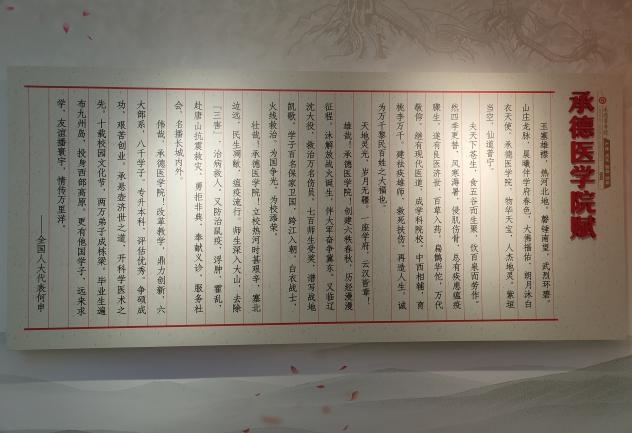 承德医学院赋
玉塞雄襟，热河北地。磬锤南望，武烈环碧。
山庄龙脉，晨曦伴学府春色，大佛福佑，朗月沐白
衣天使。承德医学院，物华天宝，人杰地灵。紫垣
当空，仙道普宁。
夫天下苍生，食五谷而生聚，饮百泉而劳作。
然四季更替，风寒海暑，侵肌伤骨，总有疾患瘟疫
骤生。遂有良医济世，百草入药，扁鹊华佗，万代
敬仰。继有现代医道，成学科院校，中西相辅，育
桃李万千，建祛疾雄师，救死扶伤，再造人生，诚
为万千黎民百姓之大福也。
天地灵光，岁月无疆，一座学府，云汉皆章！
雄哉！承德医学院，创建六秩春秋，历经漫漫
征程。沐解放战火诞生，伴大军奋争冀东。又临辽
沈大役，救治万名伤员，七百师生受奖，谱写战地
凯歌。学子百名保家卫国，跨江入朝，白衣战士，
火线救治，为国争光，为校添荣。
壮哉！承德医学院！立校热河时甚艰辛，塞北
边远，民生凋敝，瘟疫流行。师生深入大山，去除
「三害」，治病救人，又防治鼠疫，浮肿，霍乱，
赴唐山抗震救灾，勇拒非典，奉献义诊，服务社
会，名播长城内外。
伟哉，承德医学院！改革教学，鼎力创新，六
大部系，八千学子，专升本科，评估优秀。争硕成
功，艰苦创业。承悬壶济世之道，开科学医术之
先，十载校园文化节，两万弟子成栋梁。毕业生遍
布九州岛，投身西部高原，更有他国学子，远来求
学，友谊播寰宇，情传万里洋。
——全国人大代表何申